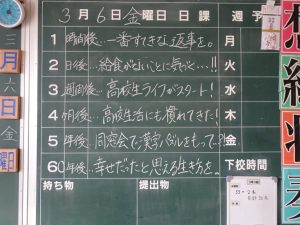 3月6日金曜日 日課 週予
1 時間後…一番すてきな返事を。 月
2 日後…給食がないことに気づく…!! 火
3 週間後…高校生ライフがスタート! 水
4 ヶ月後…高校生活にも慣れてきた! 木
5 年後…同窓会で漢字バトルをもって?! 金
60年後…幸せだったと思える生き方を。 下校時間
持ち物 提出物
三
月
六
日
金
曜
想